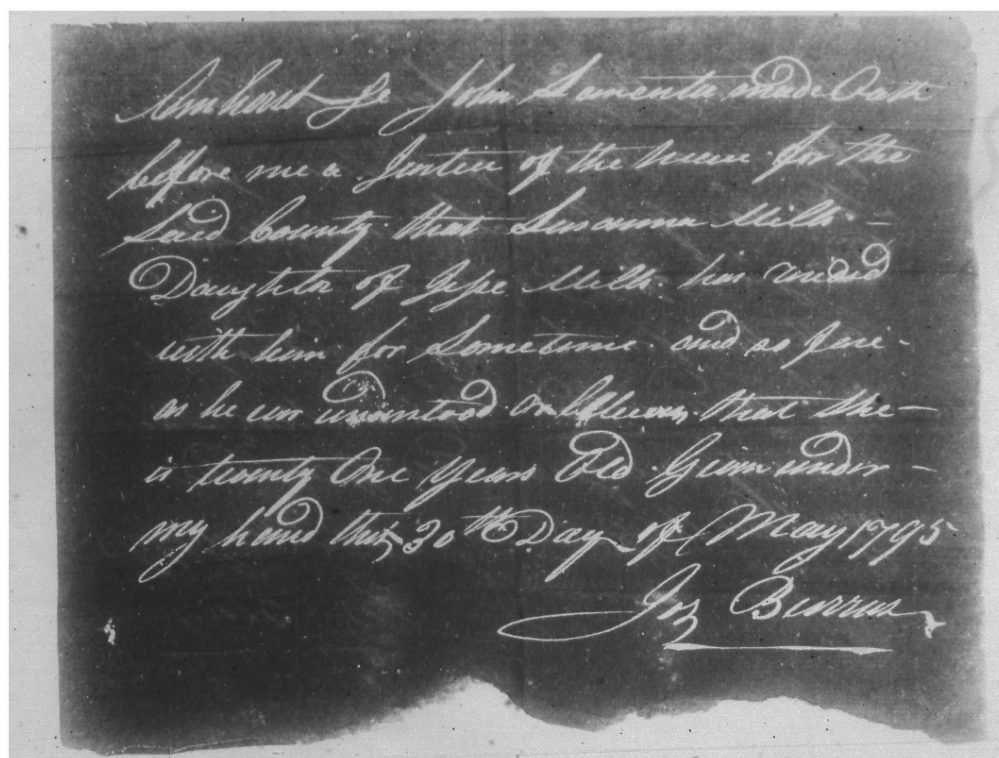 Amherst Sc John Lamenta made Oath
before me a Justice of the peace for the
Said County that Susanna Mills -
Daughter of Jesse Mills has resided
with him for Sometime and so fare -
as he can understood or believes that she -
is twenty One years Old Given under -
my hand this 30th Day of May 1795
Jos Burrus